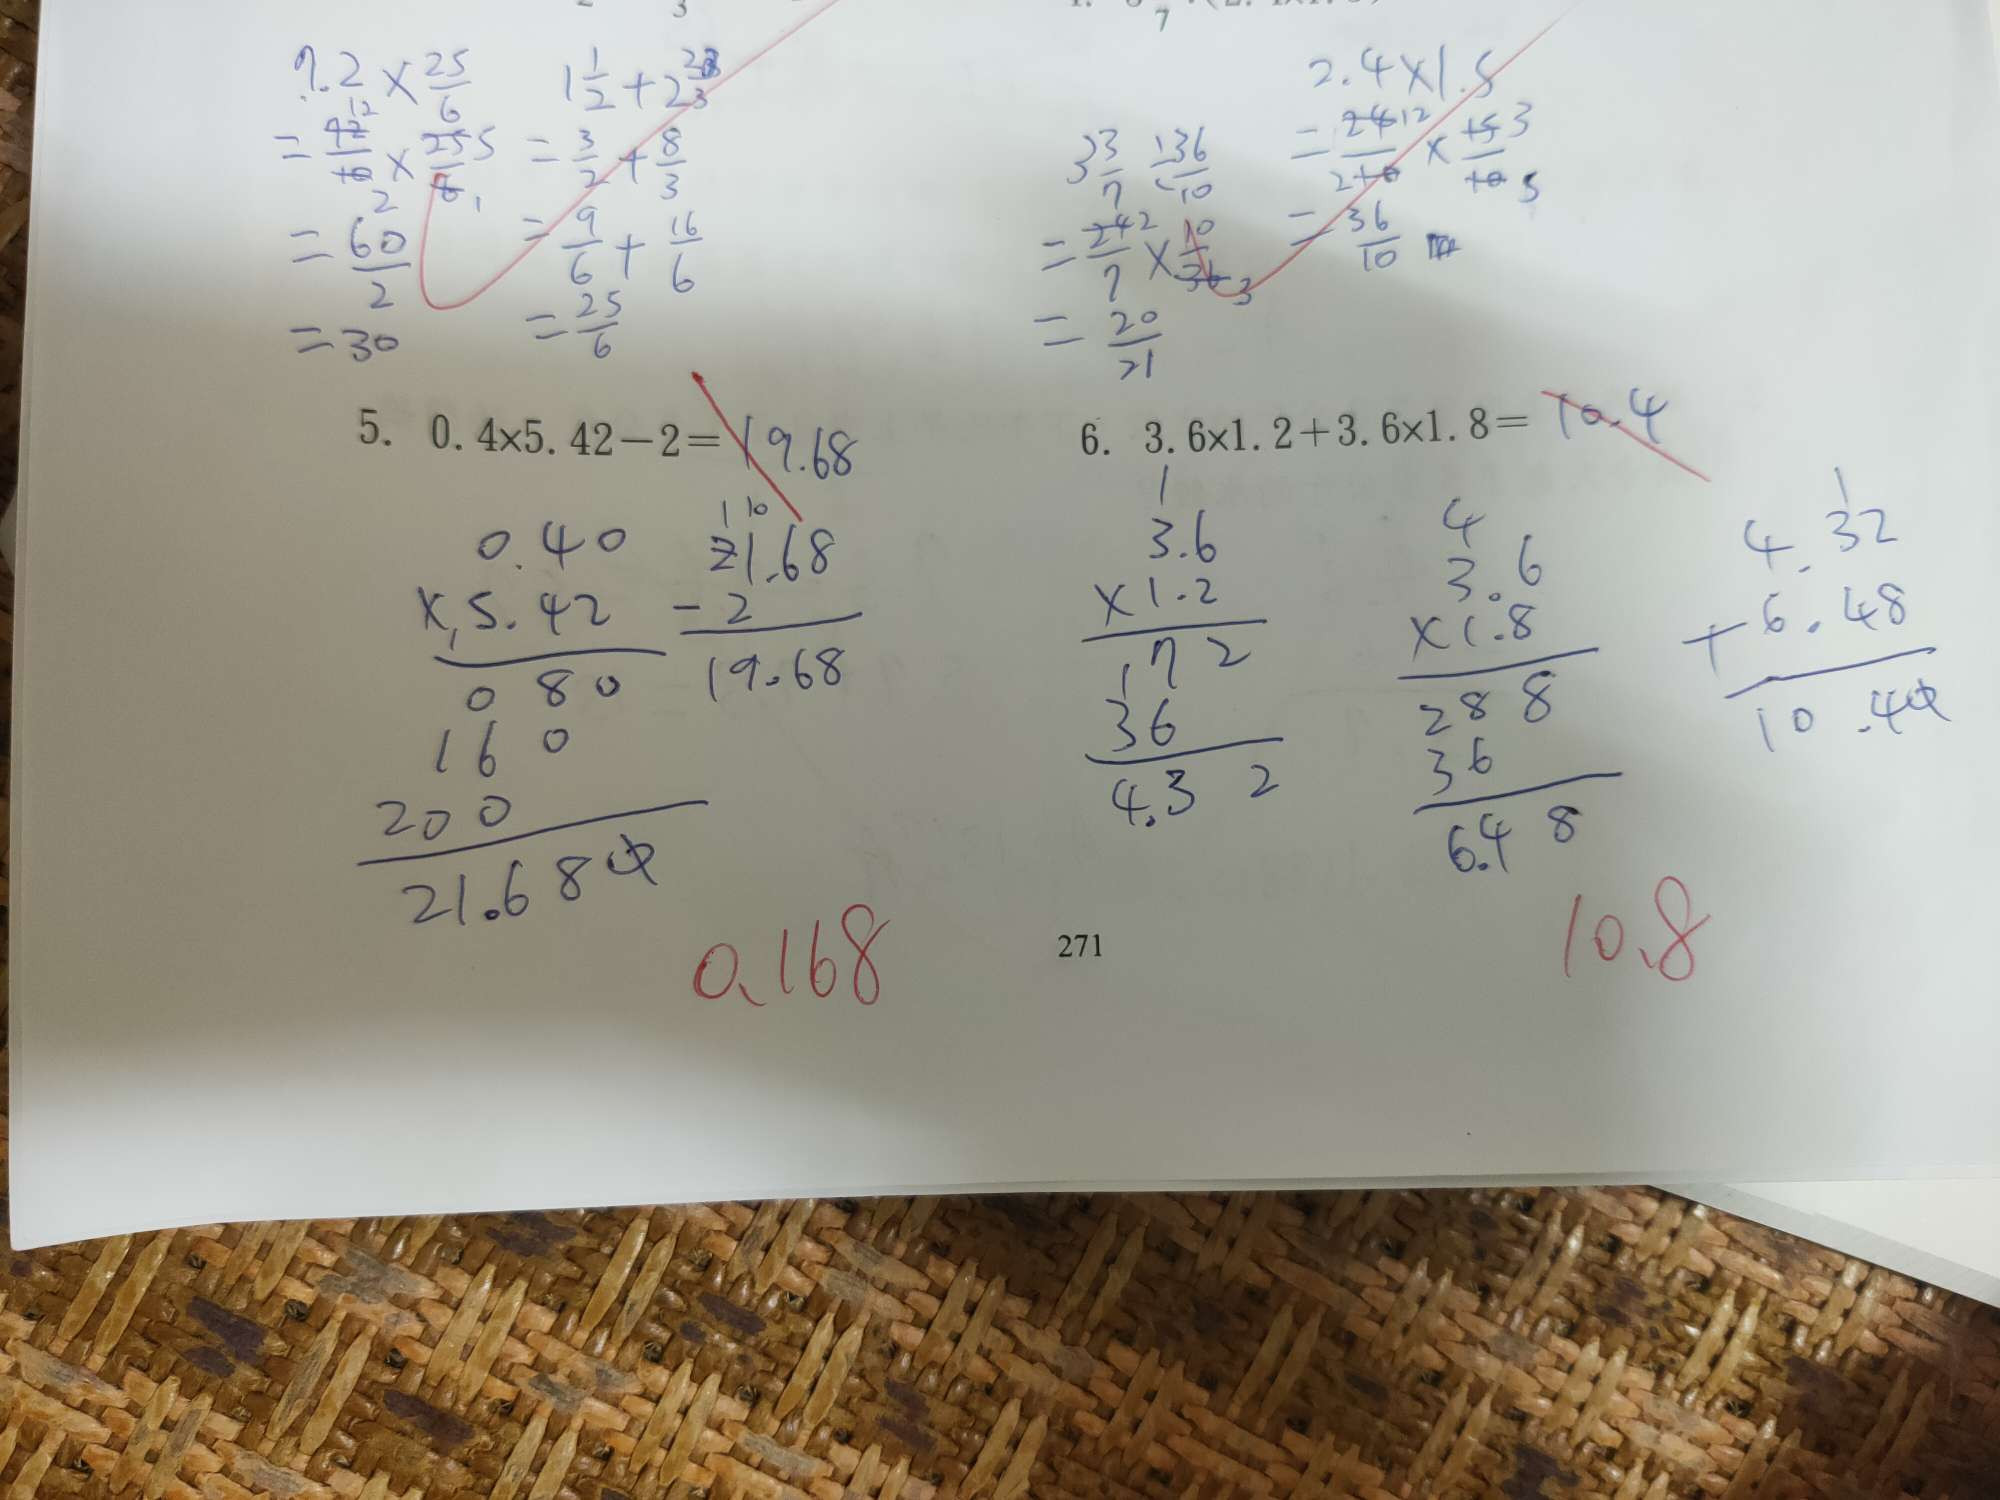 7.2 × 25/6
= 72/10 12 2 × 25/6 5 1
= 60/2
= 30
1 1/2 + 2 2/3
= 3/2 + 8/3
= 9/6 + 16/6
= 25/6
3 3/7 ÷ 36/10
= 24/7 2 × 10/36 3
= 20/21
2.4 × 1.5
= 24/10 12 2 × 15/10 3 5
= 36/10
5. 0.4×5.42−2= 19.68
0.40
×5.42
0 8 0
1 6 0
2 0 0
21.680
1 10
21.68
− 2
19.68
0.168
6. 3.6×1.2+3.6×1.8= 10.4
1
3.6
×1.2
1 7 2
3 6
4.3 2
4
3.6
×1.8
2 8 8
3 6
6.4 8
1
4.32
+6.48
10.40
10.8
271